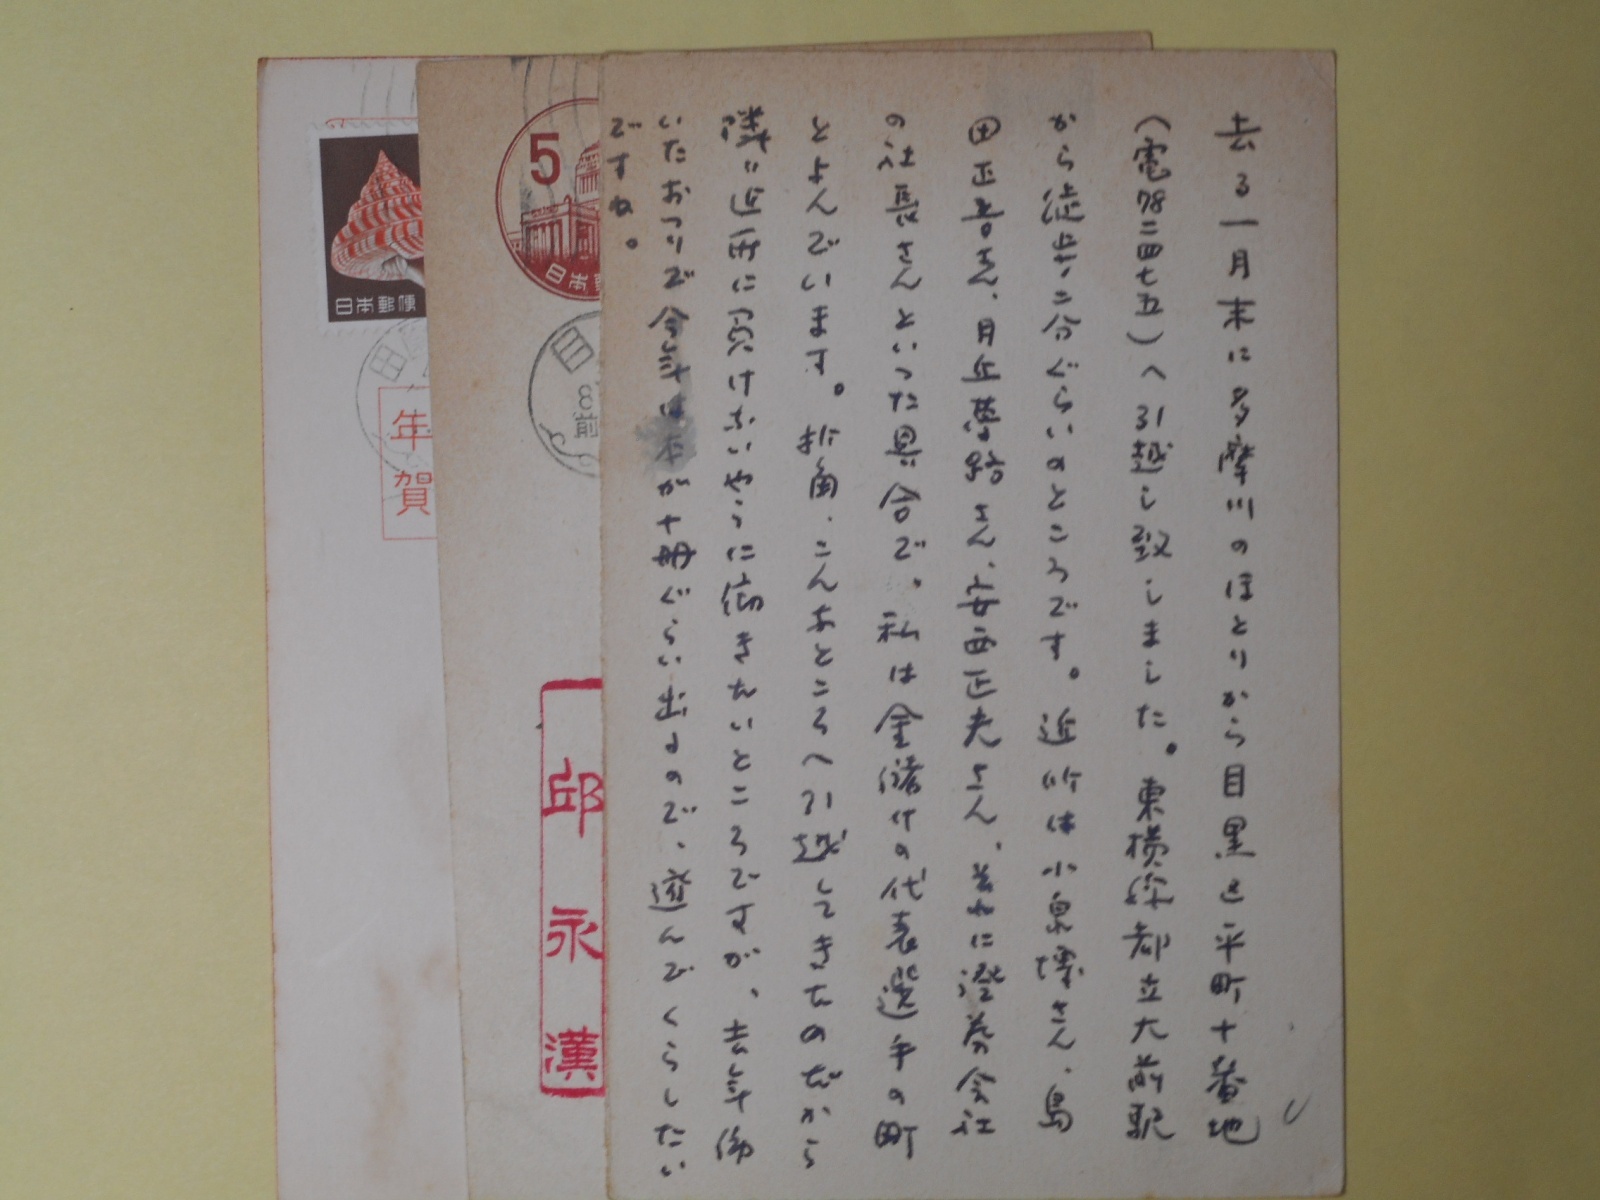 去る一月末に多摩川のほとりから目黒区平町十番地
（電78二四七五）へ引越し致しました。東横線都立大前駅
から徒歩二分ぐらいのところです。近所は小泉博さん、島
田正吾さん、月丘夢路さん、安西正夫さん、それに澄券会社
の社長さんといった具合で、私は金儲けの代表選手の町
とよんでいます。折角、こんなところへ引越してきたのだから
隣り近所に負けないやうに働きたいところですが、去年働
いたおつりで今年は本が十冊ぐらい出るので、遊んでくらしたい
ですね。
5
日本郵
目
前
邱永漢
日本郵便
田
年賀